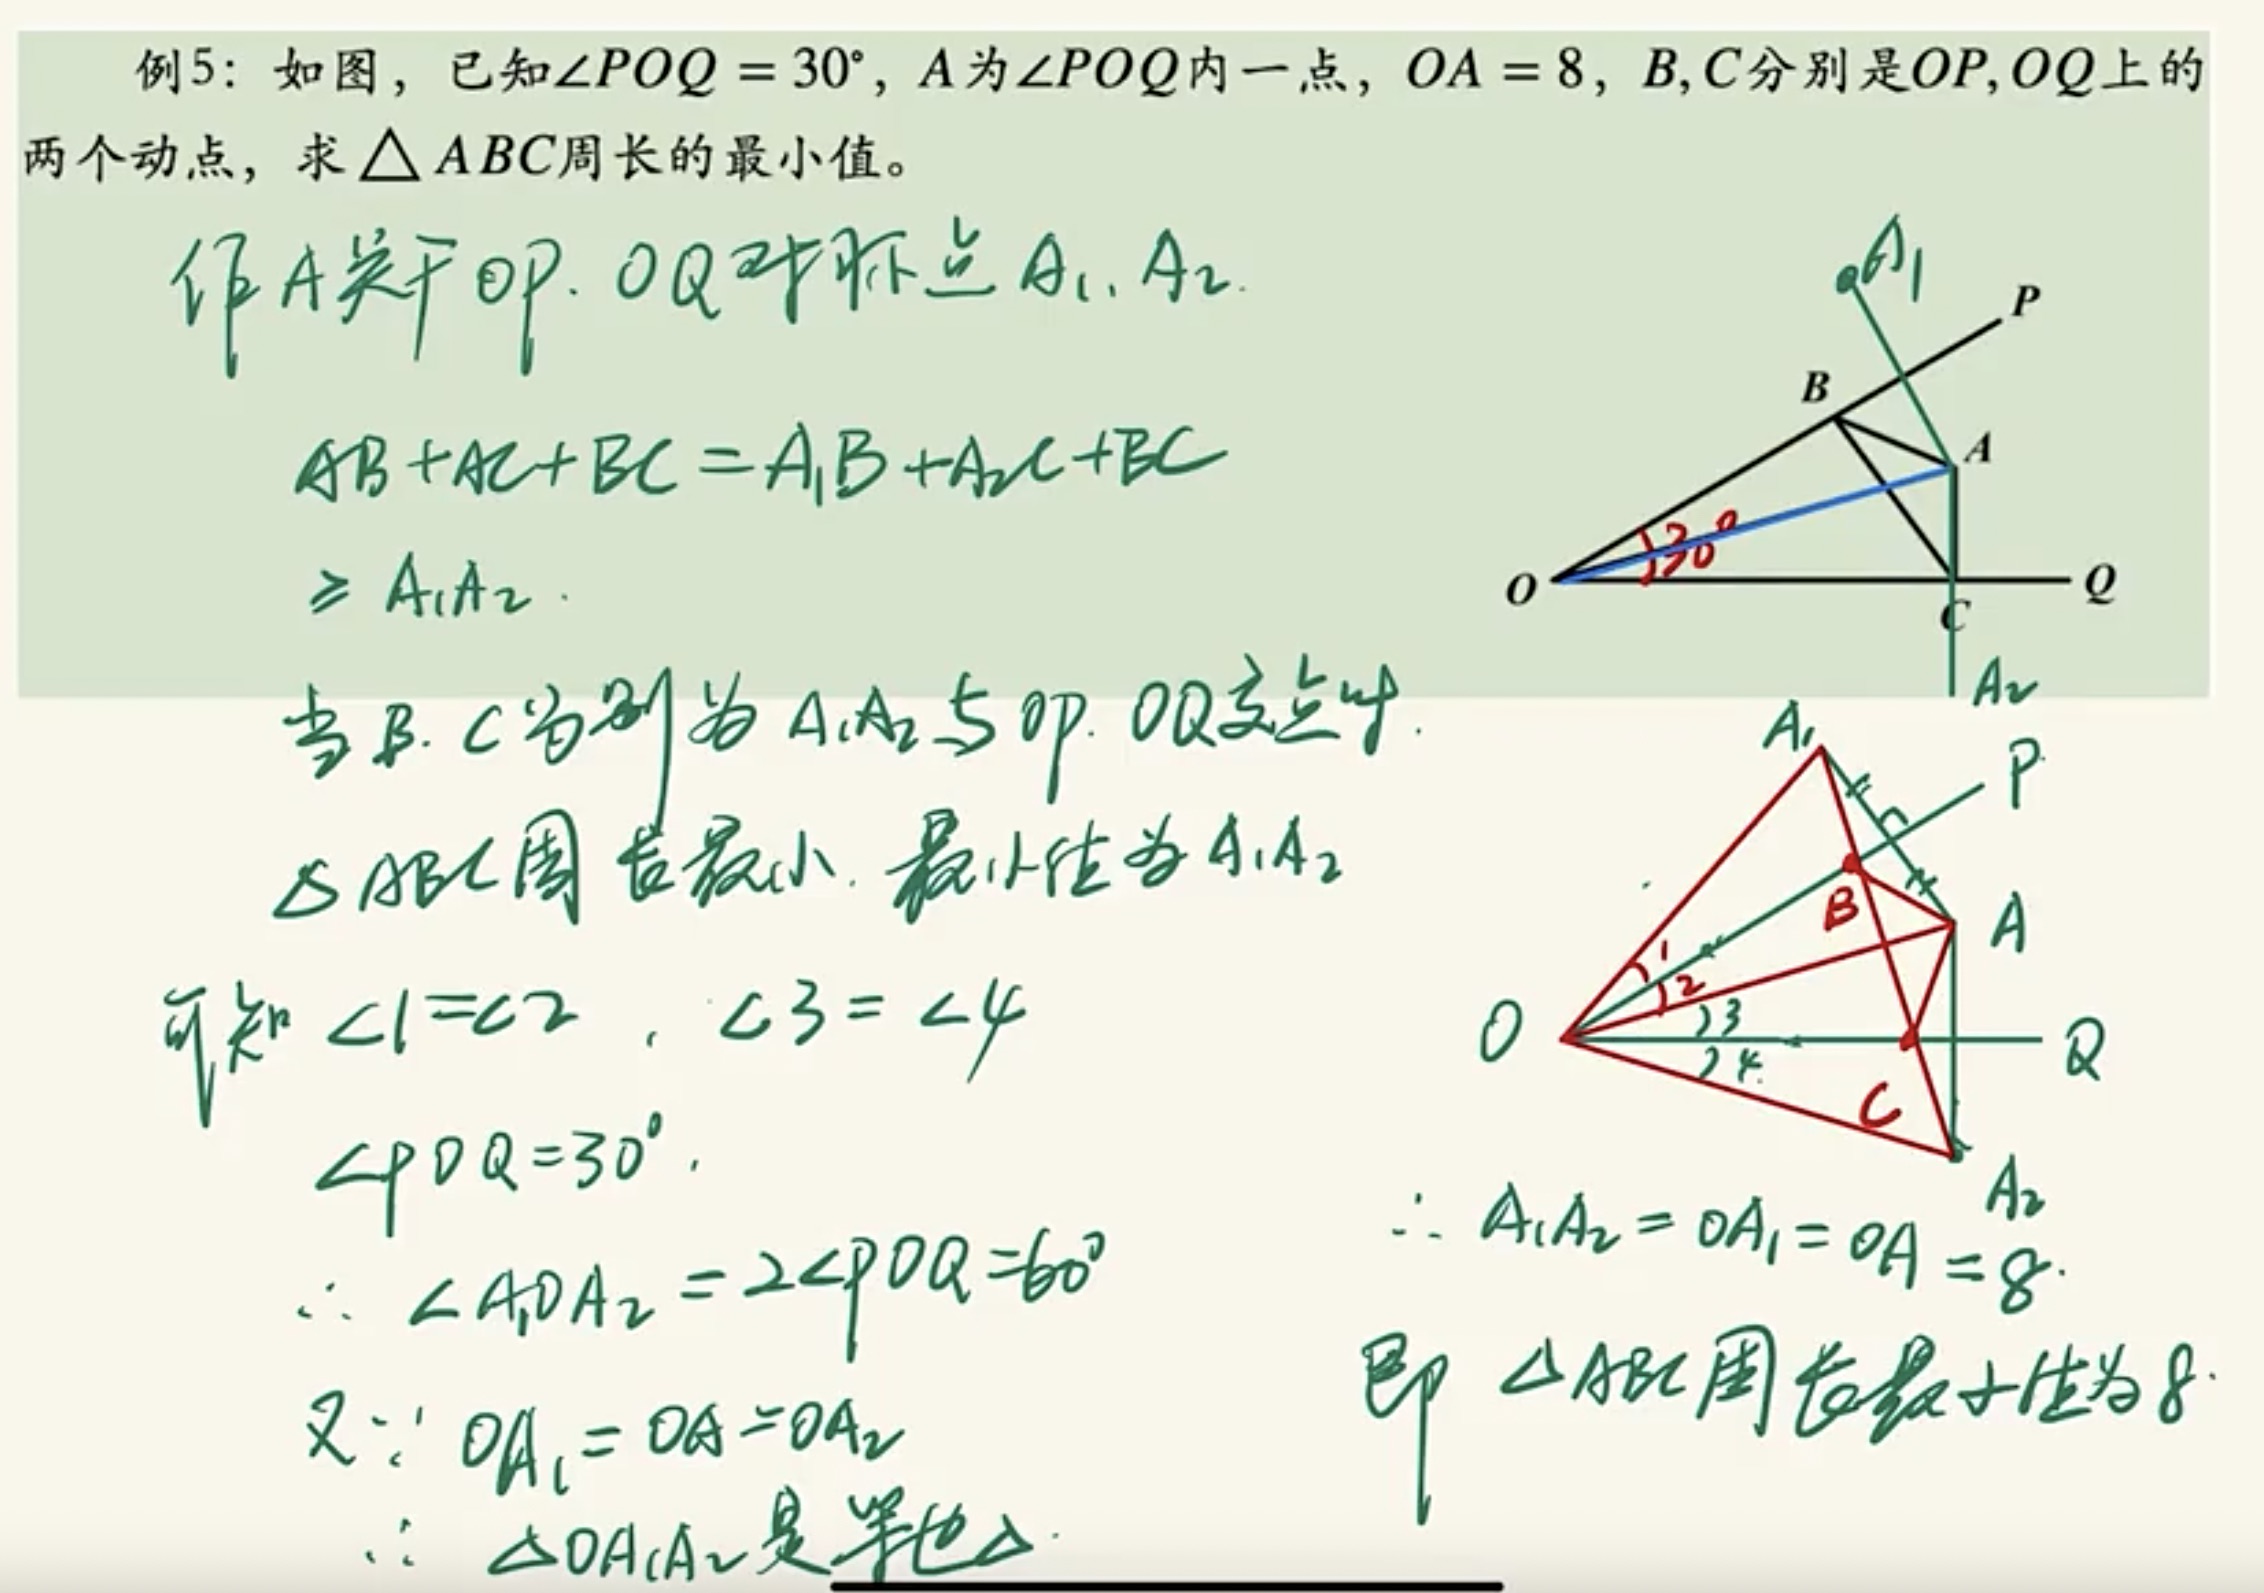 例5：如图，已知∠POQ = 30°，A为∠POQ内一点，OA = 8，B, C分别是OP, OQ上的
两个动点，求△ABC周长的最小值。
作A关于OP. OQ对称点A₁、A₂.
AB+AC+BC=A₁B+A₂C+BC
≥ A₁A₂.
当B. C分别为A₁A₂与OP. OQ交点时.
△ABC周长最小. 最小值为A₁A₂
可知 ∠1=∠2 , ∠3=∠4
∠POQ=30°.
∴ ∠A₁OA₂=2∠POQ=60°
又∵ OA₁=OA=OA₂
∴ △OA₁A₂是等边△.
A₁
P
B
A
30°
O
Q
C
A₂
A₁
P
B
A
1
2
3
O
Q
4
C
A₂
∴ A₁A₂=OA₁=OA=8.
即 △ABC周长最小值为8.